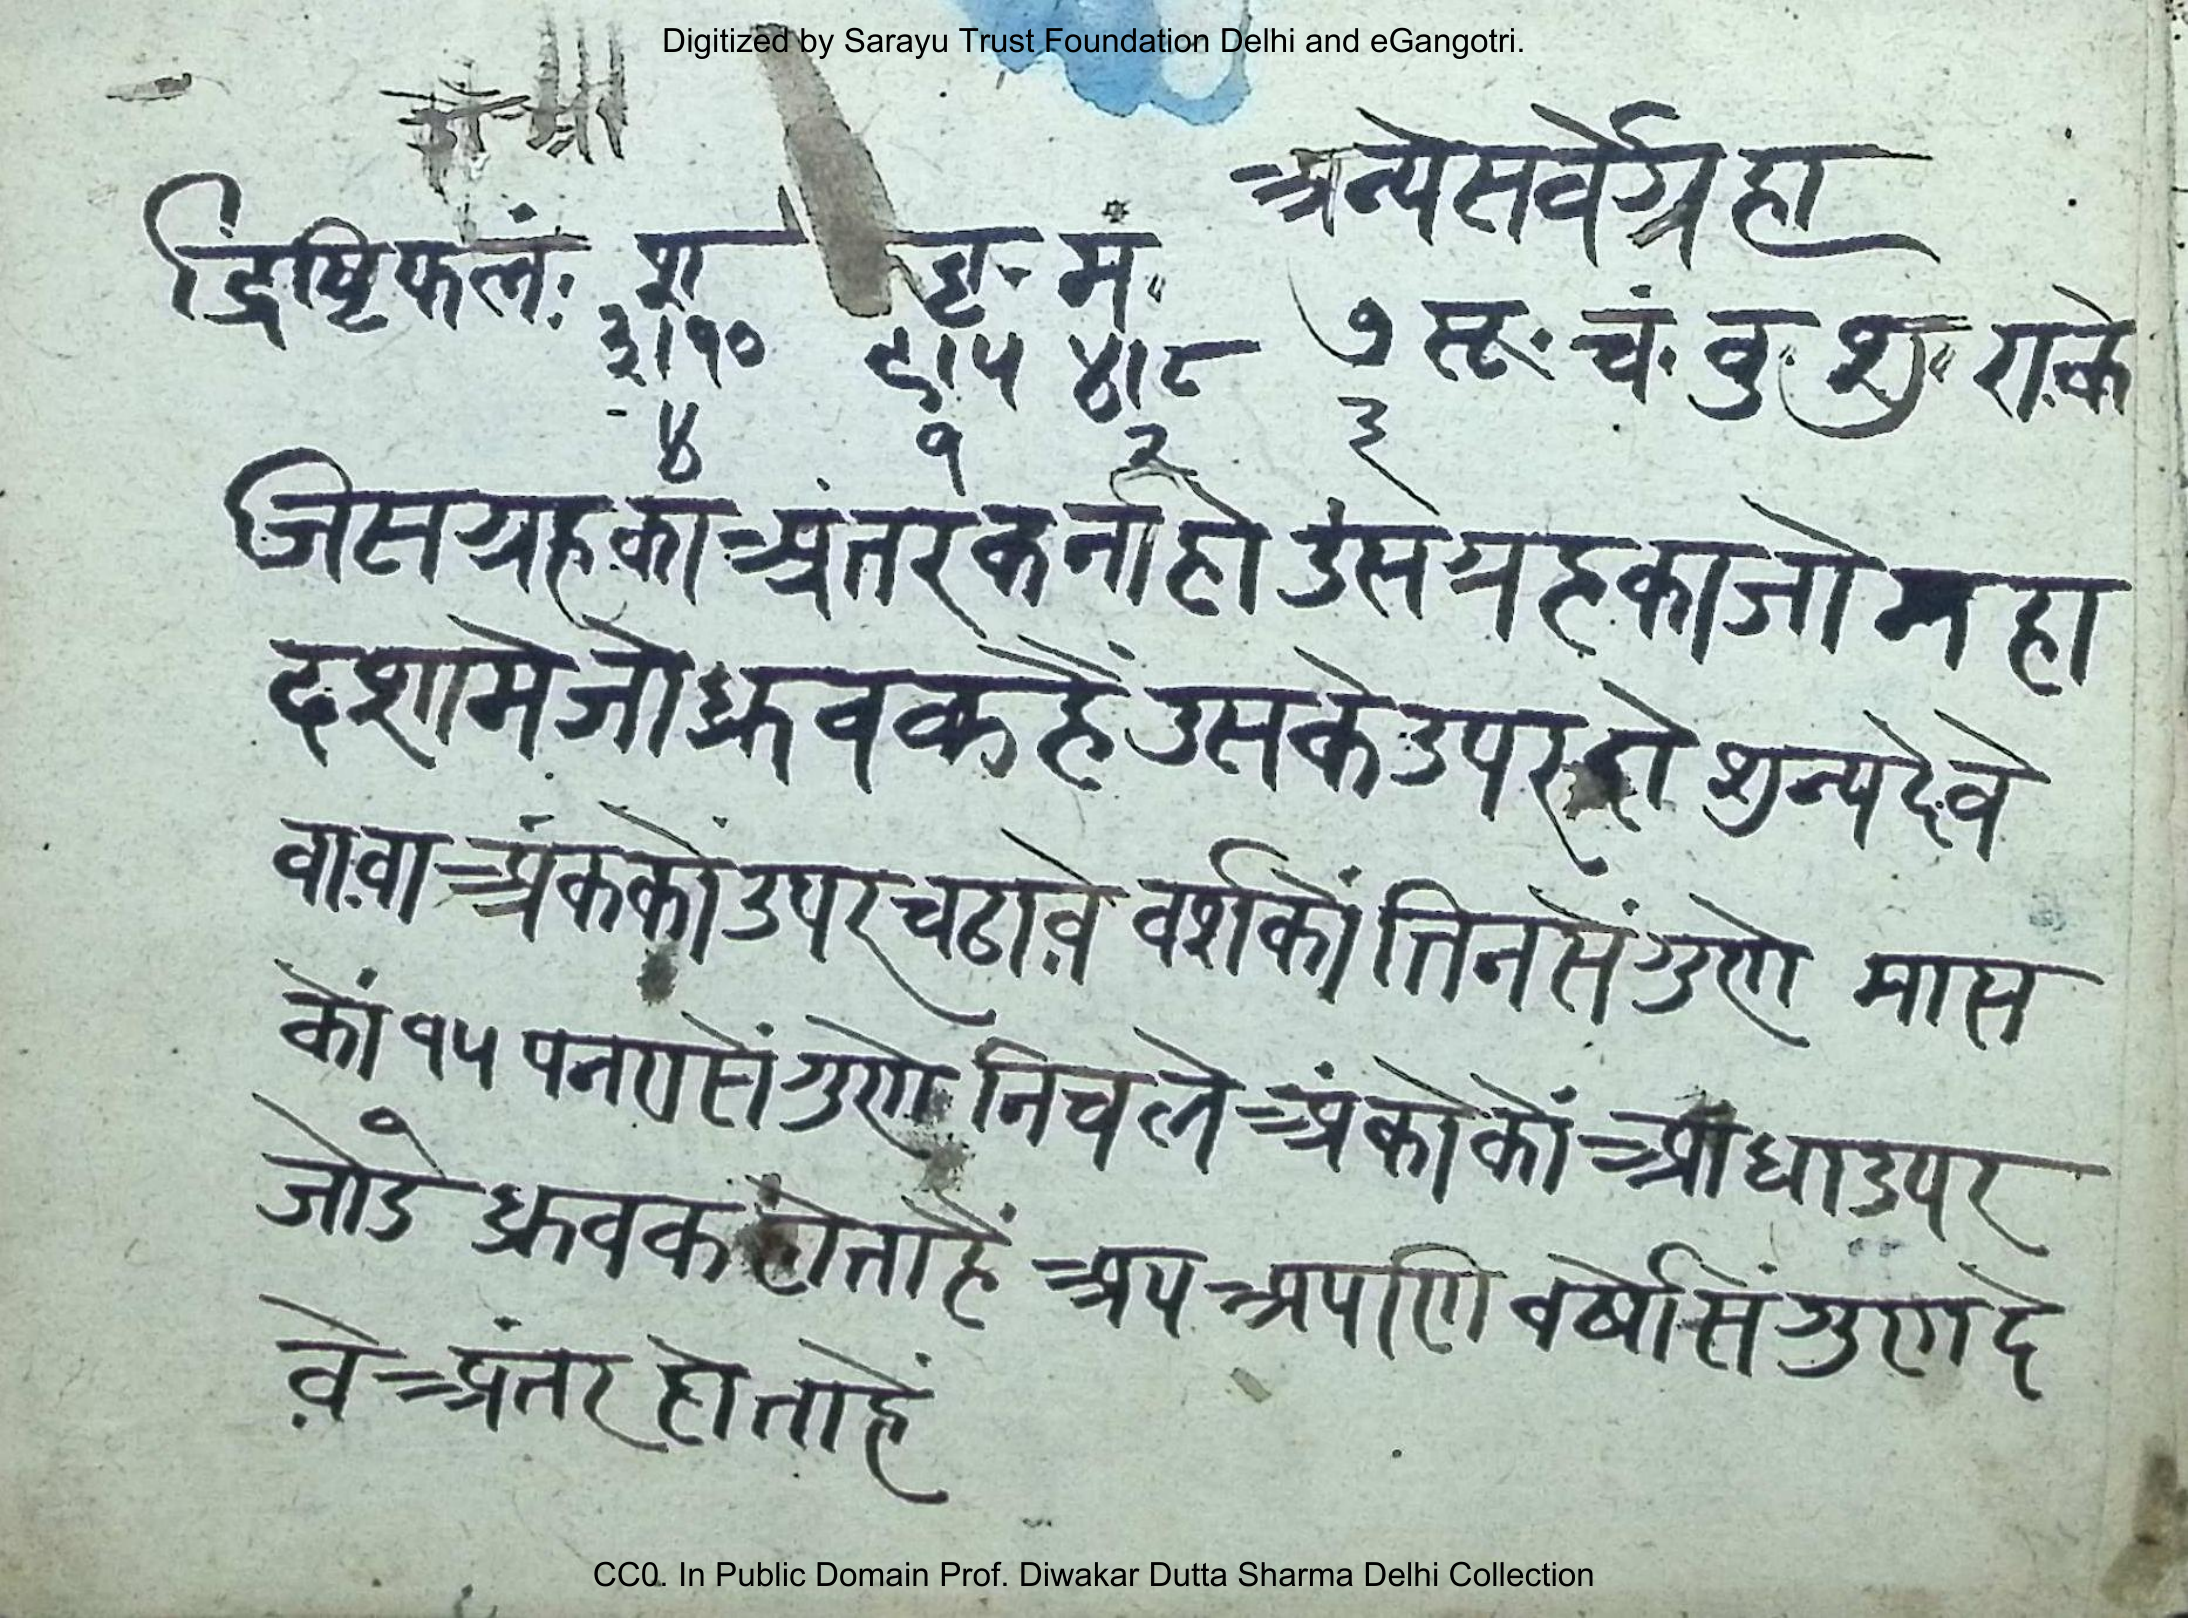 Digitized by Sarayu Trust Foundation Delhi and eGangotri.
अन्येसर्वेग्रहा
द्रिष्टिफलं: श बृ· मं·
३।१० ९।५ ४।८ ७ सू· चं· बु· शु· रा.के
४ १ २ ३
जिसग्रहका अंतरकर्नाहो उसग्रहकाजो महा
दशामेजोध्रुवकहैं उसकेउपरदो शुन्यदेवे
वा.वा अंककों उपरचढावे वर्शकों तिनसें गुणे मास
कों १५ पनरासें गुणे निचले अंकोकों आधाउपर
जोडे ध्रुवक होताहैं अपअपणि वर्षोसें गुणदे
वे अंतरहोताहैं
CC0. In Public Domain Prof. Diwakar Dutta Sharma Delhi Collection